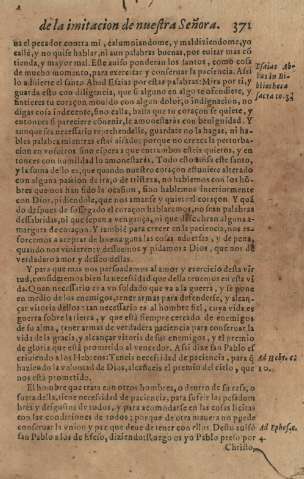 de la imitacion de nuestra Señora. 371
ua el pecador contra mi, calumniandome, y maldiziendome, yo
callè, y no quise hablar, ni aun palabras buenas, por euitar mas có
tienda, y mayor mal. Este auiso ponderan los santos, como cosa
de mucho momento, para exercitar y conseruar la paciencia. Assi
lo aduierte el santo Abad Esaias por estas palabras: Mira por ti, y
guarda esto con diligencia, que si alguno en algo te ofendiere, y
sintieres tu coraçon mouido con algun dolor, o indignacion, no
digas cosa indecente, sino calla, hasta que tu coraçon se quiete, y
entonces si pareciere conuenir, le amonestaràs con benignidad. Y
aunque sea necessario reprehendelle, guardate no la hagas, ni ha-
bles palabra mientras estàs airado; porque no crezca la perturba-
cion en vosotros: sino espera a que entrambos esteis quietos, y en
tonces con humildad lo amonestaràs. Todo esto
y la suma dello es, que quando nuestro coraçon estuuiere alterado
con alguna passion de ira, o de tristeza, no hablemos con los hó-
bres que nos han sido la ocasion, sino hablemos interiormente
con Dios, pidiendole, que nos amanse y quiete el coraçon. Y quã
do despues de sossegado el coraçon hablaremos, no sean palabras
desabridas, ni que sepan a vengança, ni que descubran alguna a-
margura de coraçon. Y tambiē para crecer en la paciencia, nos es-
forcemos a aceptar de buena gana las cosas aduersas, y de pena,
quando nos vinieren: y desseemos y pidamos a Dios, que nos dè
verdadero amor y desseo dellas.
Y para que mas nos persuadamos al amor y exercicio desta vir
tud, consideremos bien la necessidad que della tenemos en esta vi
da. Quan necessario era vn soldado que va a la guerra, y se pone
en medio de los enemigos, tener armas para defenderse, y alcan-
çar vitoria dellos: tan necessario es al hombre fiel, cuya vida es
guerra sobre la tierra, y que està siempre cercado de enemigos
de su alma, tener armas de verdadera paciencia para conseruar la
vida de la gracia, y alcançar vitoria de sus enemigos, y el premio
de gloria que està prometido al vencedor. Assi dize san Pablo es
criuiendo a los Hebreos: Teneis necessidad de paciencia, para q̃
haziendo la voluntad de Dios, alcanceis el premio del cielo, que
nos està prometido.
El hombre que trata con otros hombres, o dentro de su casa, o
fuera della, tiene necessidad de paciencia, para sufrir las pesadum
bres y desgustos de todos, y para acomodarse en las cosas licitas
con las condiciones de todos; porque de otra manera no puede
conseruar la vnion y paz que deue de tener con ellos. Desto auisò
san Pablo a los de Efeso, diziendo: Ruego os yo Pablo preso por
Christo,
Esaias Ab-
bas in Bi-
bliotheca
Ad Hebr. c.
10.
Ad Ephes. c.
4.